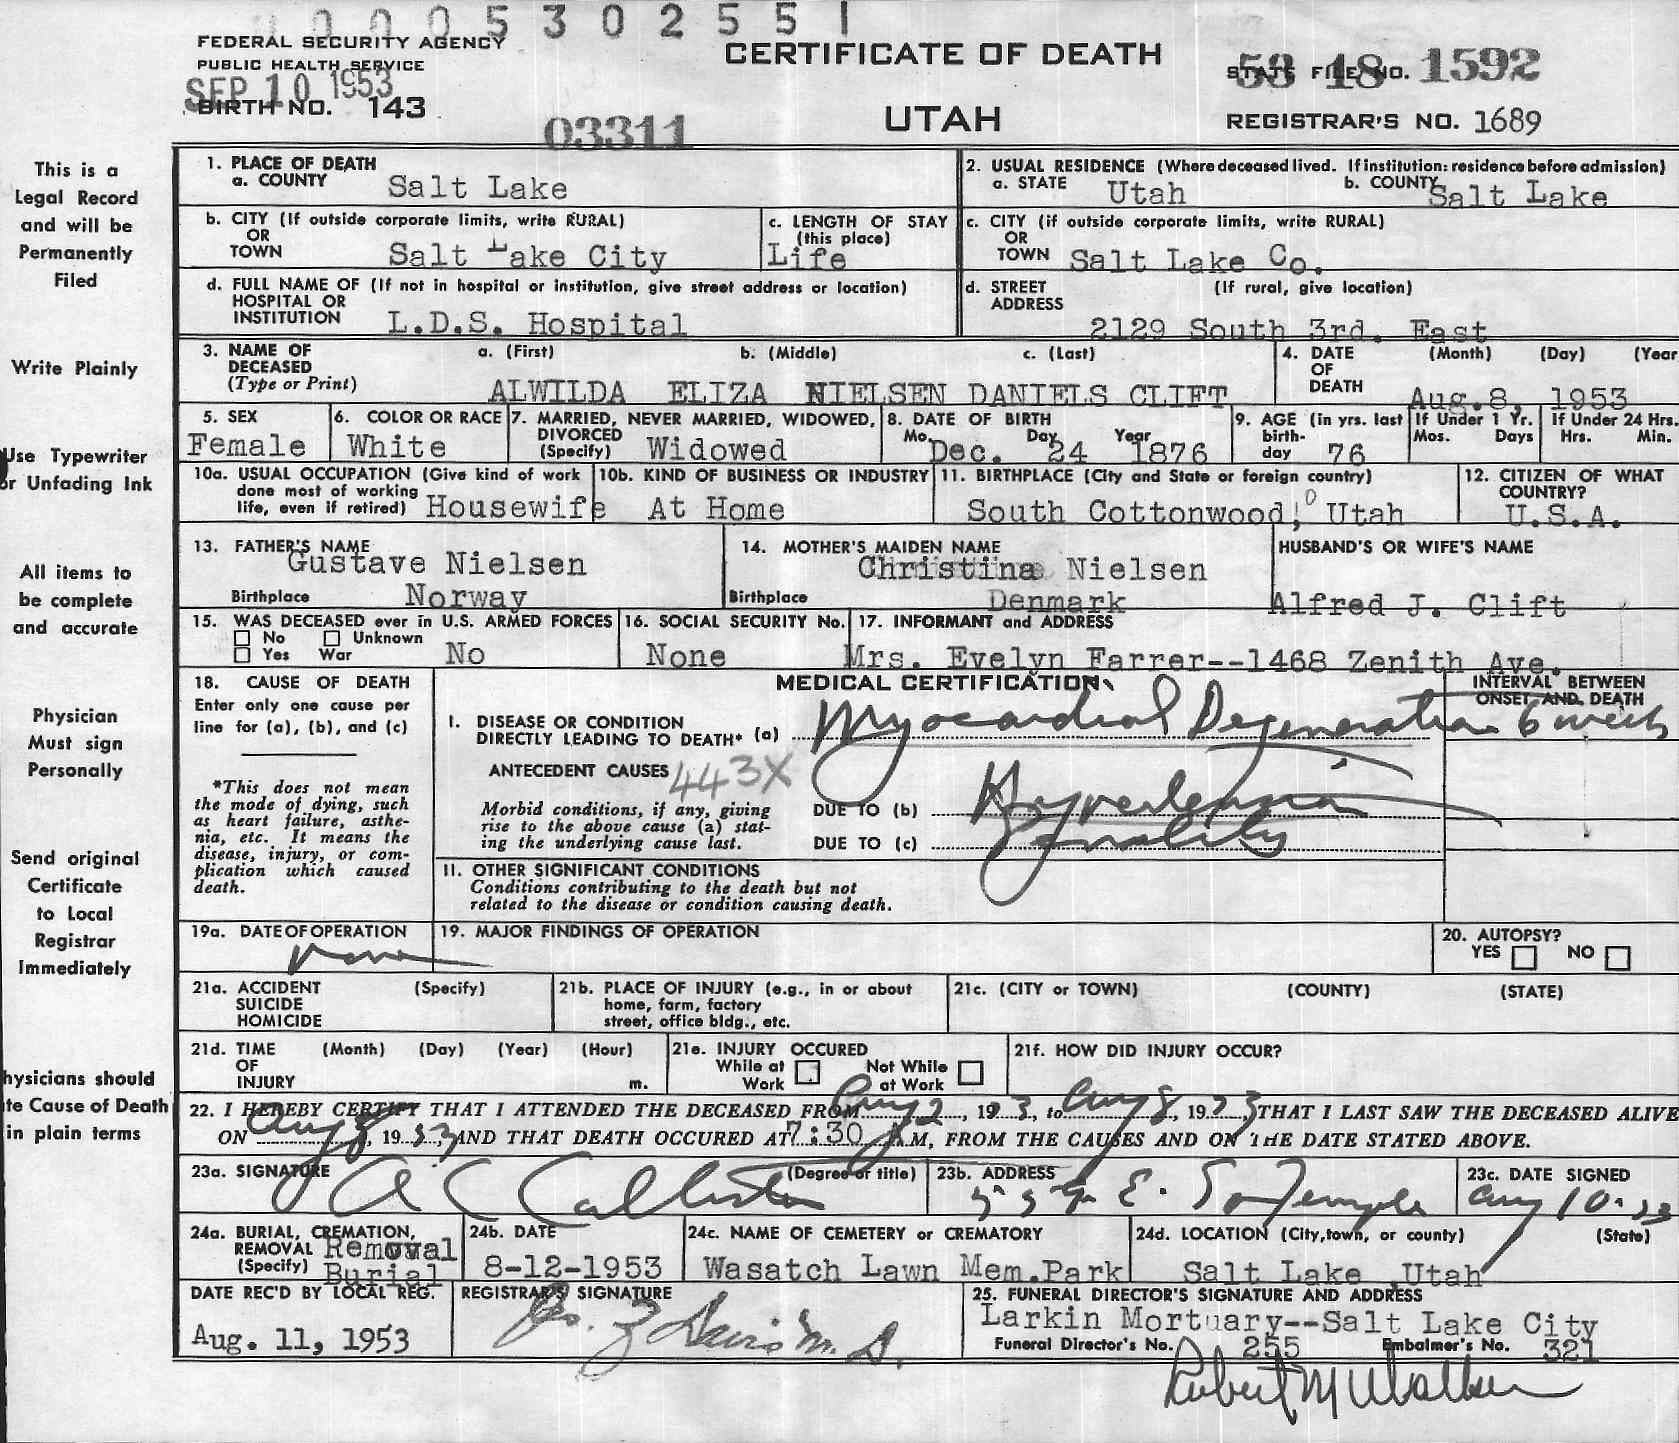 0000530255 1
FEDERAL SECURITY AGENCY
PUBLIC HEALTH SERVICE
SEP 10 1953
BIRTH NO. 143
03311
CERTIFICATE OF DEATH
UTAH
STATE FILE NO. 53 18 1592
REGISTRAR'S NO. 1689
This is a
Legal Record
and will be
Permanently
Filed
Write Plainly
Use Typewriter
or Unfading Ink
All items to
be complete
and accurate
Physician
Must sign
Personally
Send original
Certificate
to Local
Registrar
Immediately
hysicians should
te Cause of Death
in plain terms
1. PLACE OF DEATH
a. COUNTY Salt Lake
2. USUAL RESIDENCE (Where deceased lived. If institution: residence before admission)
a. STATE Utah b. COUNTY Salt Lake
b. CITY (If outside corporate limits, write RURAL)
OR
TOWN Salt Lake City
c. LENGTH OF STAY
(this place)
Life
c. CITY (if outside corporate limits, write RURAL)
OR
TOWN Salt Lake Co.
d. FULL NAME OF (If not in hospital or institution, give street address or location)
HOSPITAL OR
INSTITUTION L.D.S. Hospital
d. STREET (If rural, give location)
ADDRESS
2129 South 3rd. East
3. NAME OF a. (First) b. (Middle) c. (Last)
DECEASED
(Type or Print) ALWILDA ELIZA NIELSEN DANIELS CLIFT
4. DATE (Month) (Day) (Year
OF
DEATH Aug.8, 1953
5. SEX
Female
6. COLOR OR RACE
White
7. MARRIED, NEVER MARRIED, WIDOWED,
DIVORCED
(Specify) Widowed
8. DATE OF BIRTH
Mo. Day Year
Dec. 24 1876
9. AGE (in yrs. last
birth-
day 76
If Under 1 Yr.
Mos. Days
If Under 24 Hrs.
Hrs. Min.
10a. USUAL OCCUPATION (Give kind of work
done most of working
life, even if retired) Housewife
10b. KIND OF BUSINESS OR INDUSTRY
At Home
11. BIRTHPLACE (City and State or foreign country)
South Cottonwood, Utah
12. CITIZEN OF WHAT
COUNTRY?
U.S.A.
13. FATHER'S NAME
Gustave Nielsen
Birthplace Norway
14. MOTHER'S MAIDEN NAME
Christina Nielsen
Birthplace Denmark
HUSBAND'S OR WIFE'S NAME
Alfred J. Clift
15. WAS DECEASED ever in U.S. ARMED FORCES
No Unknown
Yes War No
16. SOCIAL SECURITY No.
None
17. INFORMANT and ADDRESS
Mrs. Evelyn Farrer--1468 Zenith Ave.
18. CAUSE OF DEATH
Enter only one cause per
line for (a), (b), and (c)
*This does not mean
the mode of dying, such
as heart failure, asthe-
nia, etc. It means the
disease, injury, or com-
plication which caused
death.
MEDICAL CERTIFICATION
INTERVAL BETWEEN
ONSET AND DEATH
I. DISEASE OR CONDITION
DIRECTLY LEADING TO DEATH* (a) Myocardial Degeneration 6 weeks
ANTECEDENT CAUSES 443X
Morbid conditions, if any, giving
rise to the above cause (a) stat-
ing the underlying cause last.
DUE TO (b) Hypertension
DUE TO (c) Senility
II. OTHER SIGNIFICANT CONDITIONS
Conditions contributing to the death but not
related to the disease or condition causing death.
19a. DATE OF OPERATION
None
19. MAJOR FINDINGS OF OPERATION
20. AUTOPSY?
YES NO
21a. ACCIDENT (Specify)
SUICIDE
HOMICIDE
21b. PLACE OF INJURY (e.g., in or about
home, farm, factory
street, office bldg., etc.
21c. (CITY or TOWN) (COUNTY) (STATE)
21d. TIME (Month) (Day) (Year) (Hour)
OF
INJURY m.
21e. INJURY OCCURED
While at Work Not While at Work
21f. HOW DID INJURY OCCUR?
22. I HEREBY CERTIFY THAT I ATTENDED THE DECEASED FROM Aug 2, 1953, to Aug 8, 1953 THAT I LAST SAW THE DECEASED ALIVE
ON Aug 8, 1953, AND THAT DEATH OCCURED AT 7:30 A M, FROM THE CAUSES AND ON THE DATE STATED ABOVE.
23a. SIGNATURE (Degree or title)
A C Callister
23b. ADDRESS
E. So Temple
23c. DATE SIGNED
Aug 10-53
24a. BURIAL, CREMATION,
REMOVAL Removal
(Specify) Burial
24b. DATE
8-12-1953
24c. NAME OF CEMETERY or CREMATORY
Wasatch Lawn Mem.Park
24d. LOCATION (City,town, or county) (State)
Salt Lake ,Utah
DATE REC'D BY LOCAL REG.
Aug. 11, 1953
REGISTRAR'S SIGNATURE
Davis M.D.
25. FUNERAL DIRECTOR'S SIGNATURE AND ADDRESS
Larkin Mortuary--Salt Lake City
Funeral Director's No. 255 Embalmer's No. 321
Robert M Walker